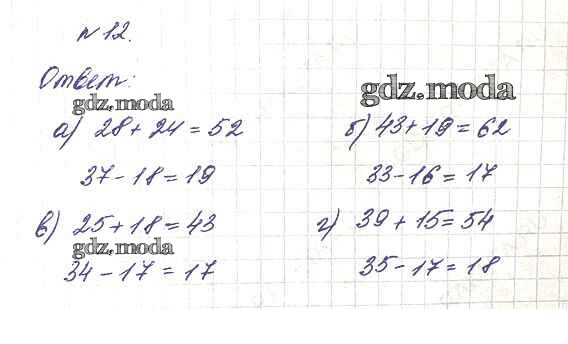 № 12.
Ответ:
gdz.moda
gdz.moda
а) 28 + 24 = 52
б) 43 + 19 = 62
37 - 18 = 19
33 - 16 = 17
в) 25 + 18 = 43
г) 39 + 15 = 54
gdz.moda
34 - 17 = 17
35 - 17 = 18